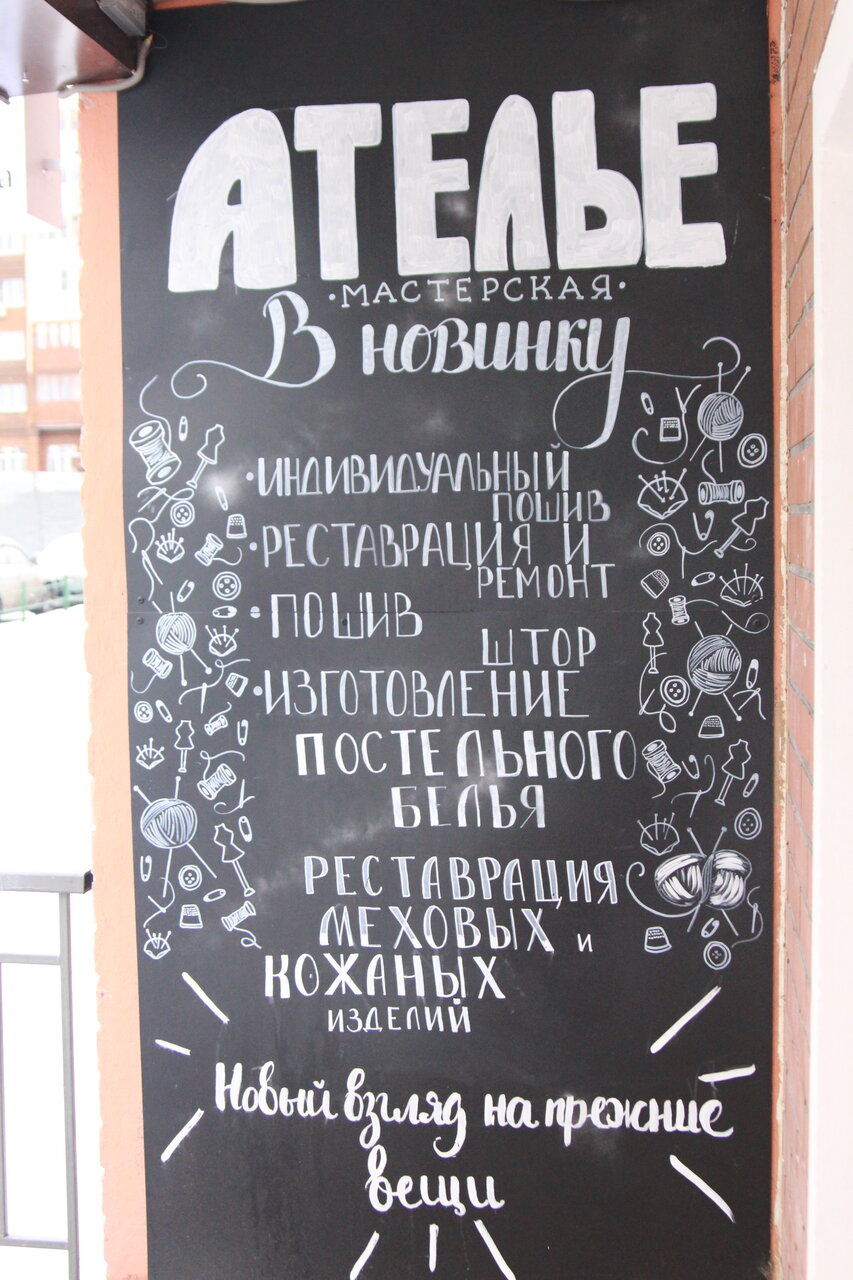 АТЕЛЬЕ
·МАСТЕРСКАЯ·
В новинку
·ИНДИВИДУАЛЬНЫЙ
ПОШИВ
·РЕСТАВРАЦИЯ И
РЕМОНТ
·ПОШИВ
ШТОР
·ИЗГОТОВЛЕНИЕ
ПОСТЕЛЬНОГО
БЕЛЬЯ
РЕСТАВРАЦИЯ
МЕХОВЫХ И
КОЖАНЫХ
ИЗДЕЛИЙ
Новый взгляд на прежние
вещи